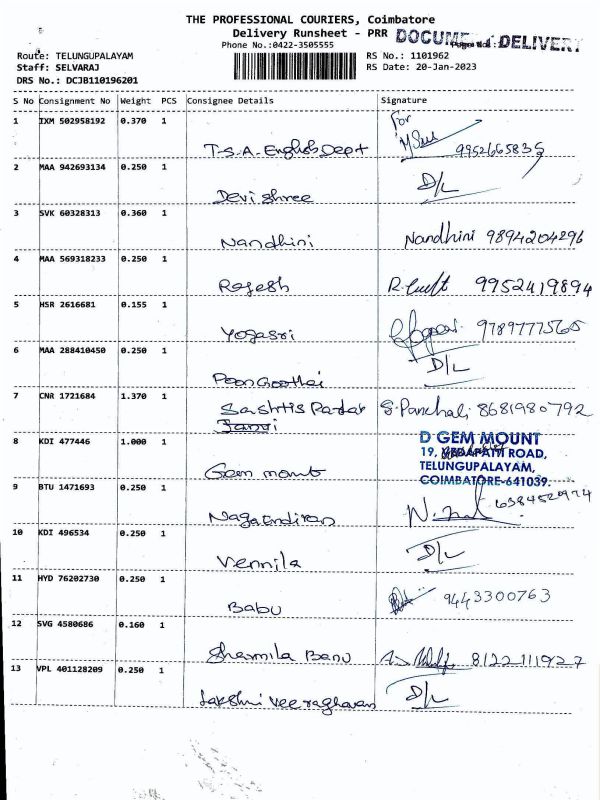 THE PROFESSIONAL COURIERS, Coimbatore
Delivery Runsheet - PRR DOCUMENT DELIVERY
Phone No.:0422-3505555
Route: TELUNGUPALAYAM RS No.: 1101962
Staff: SELVARAJ RS Date: 20-Jan-2023
DRS No.: DCJB110196201
S No Consignment No Weight PCS Consignee Details Signature
1 IXM 502958192 0.370 1
For
T-S-A-English Dept 9952665835
2 MAA 942693134 0.250 1
Devi shree D/L
3 SVK 60328313 0.360 1
Nandhini Nandhini 9894204296
4 MAA 569318233 0.250 1
Rajesh 9952419894
5 HSR 2616681 0.155 1
Yogasri 9789777565
6 MAA 288410450 0.250 1
Poongoothai D/L
7 CNR 1721684 1.370 1
Sashtis S. Panchali 8681980792
8 KDI 477446 1.000 1
D GEM MOUNT
19, VEDAPATTI ROAD,
TELUNGUPALAYAM,
COIMBATORE-641039.
Gem mount
9 BTU 1471693 0.250 1
Nagaendiran
10 KDI 496534 0.250 1
Vennila D/L
11 HYD 76202730 0.250 1
Babu 9443300763
12 SVG 4580686 0.160 1
Sharmila Banu 8122111927
13 VPL 401128209 0.250 1
Lakshmi Veeraghavan D/L